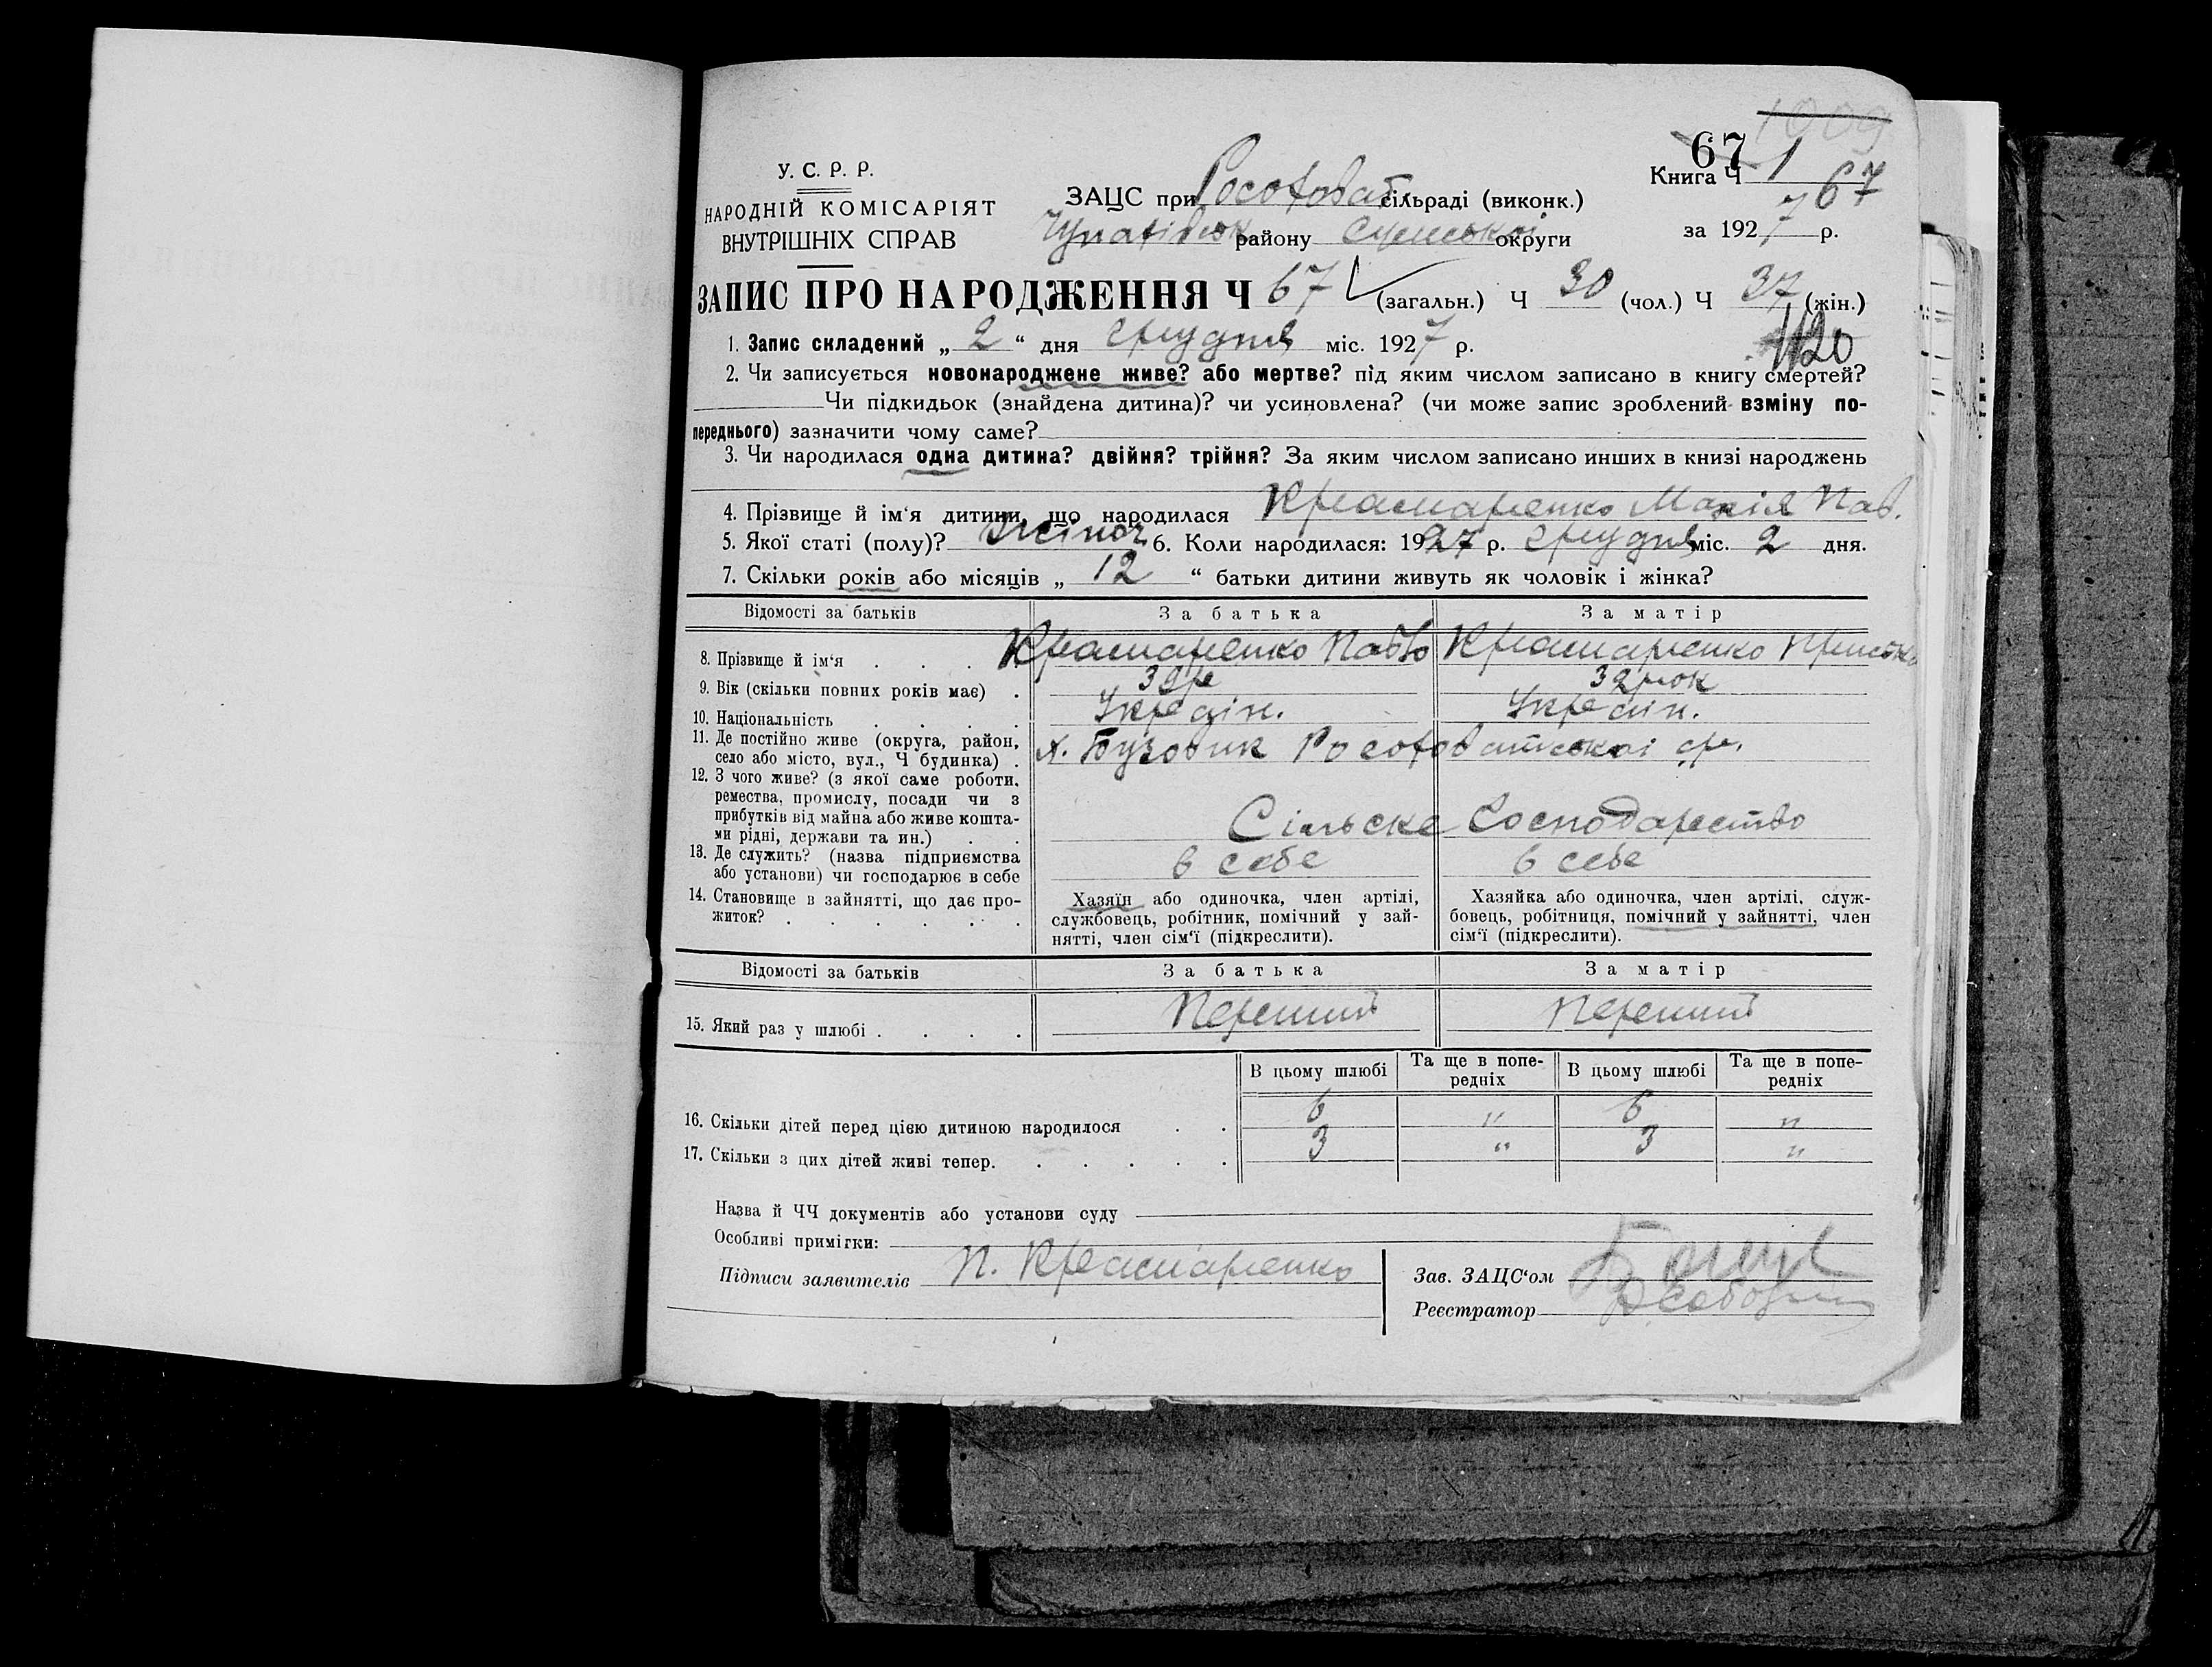 1009
67
У. С. Р. Р.
Книга Ч 1
67
НАРОДНІЙ КОМІСАРІЯТ
ВНУТРІШНІХ СПРАВ
ЗАЦС при Росоховат сільраді (виконк.)
району Сумської округи
за 1927 р.
ЗАПИС ПРО НАРОДЖЕННЯ Ч 67 (загальн.) Ч 30 (чол.) Ч 37 (жін.)
1. Запис складений „ 2 “ дня грудня міс. 1927 р.
1120
2. Чи записується новонароджене живе? або мертве? під яким числом записано в книгу смертей?
Чи підкидьок (знайдена дитина)? чи усиновлена? (чи може запис зроблений взміну по-
переднього) зазначити чому саме?
3. Чи народилася одна дитина? двійня? трійня? За яким числом записано инших в книзі народжень
4. Прізвище й ім‘я дитини, що народилася Крамаренко Марія Пав.
5. Якої статі (полу)? жіноч 6. Коли народилася: 1927 р. грудня міс. 2 дня.
7. Скільки років або місяців „ 12 “ батьки дитини живуть як чоловік і жінка?
Відомості за батьків За батька За матір
8. Прізвище й ім‘я . . . Крамаренко Павло Крамаренко
9. Вік (скільки повних років має) . 32 рок
10. Національність . . . . Україн. Україн.
11. Де постійно живе (округа, район,
село або місто, вул., Ч будинка) . х. Бузовик Росоховатської ср.
12. З чого живе? (з якої саме роботи,
ремества, промислу, посади чи з
прибутків від майна або живе кошта-
ми рідні, держави та ин.) . . Сільске Господарство
13. Де служить? (назва підприємства
або установи) чи господарює в себе в себе в себе
14. Становище в зайнятті, що дає про-
житок? . . . . . .
Хазяїн або одиночка, член артілі,
службовець, робітник, помічний у зай-
нятті, член сім‘ї (підкреслити).
Хазяйка або одиночка, член артілі, служ-
бовець, робітниця, помічний у зайнятті, член
сім‘ї (підкреслити).
Відомості за батьків За батька За матір
15. Який раз у шлюбі . . . . Перший Перший
В цьому шлюбі Та ще в попе-
редніх В цьому шлюбі Та ще в попе-
редніх
16. Скільки дітей перед цією дитиною народилося . . 6 " 6 "
17. Скільки з цих дітей живі тепер. . . . . . 3 " 3 "
Назва й ЧЧ документів або установи суду
Особливі примітки:
Підписи заявителів П. Крамаренко
Зав. ЗАЦС‘ом
Реєстратор